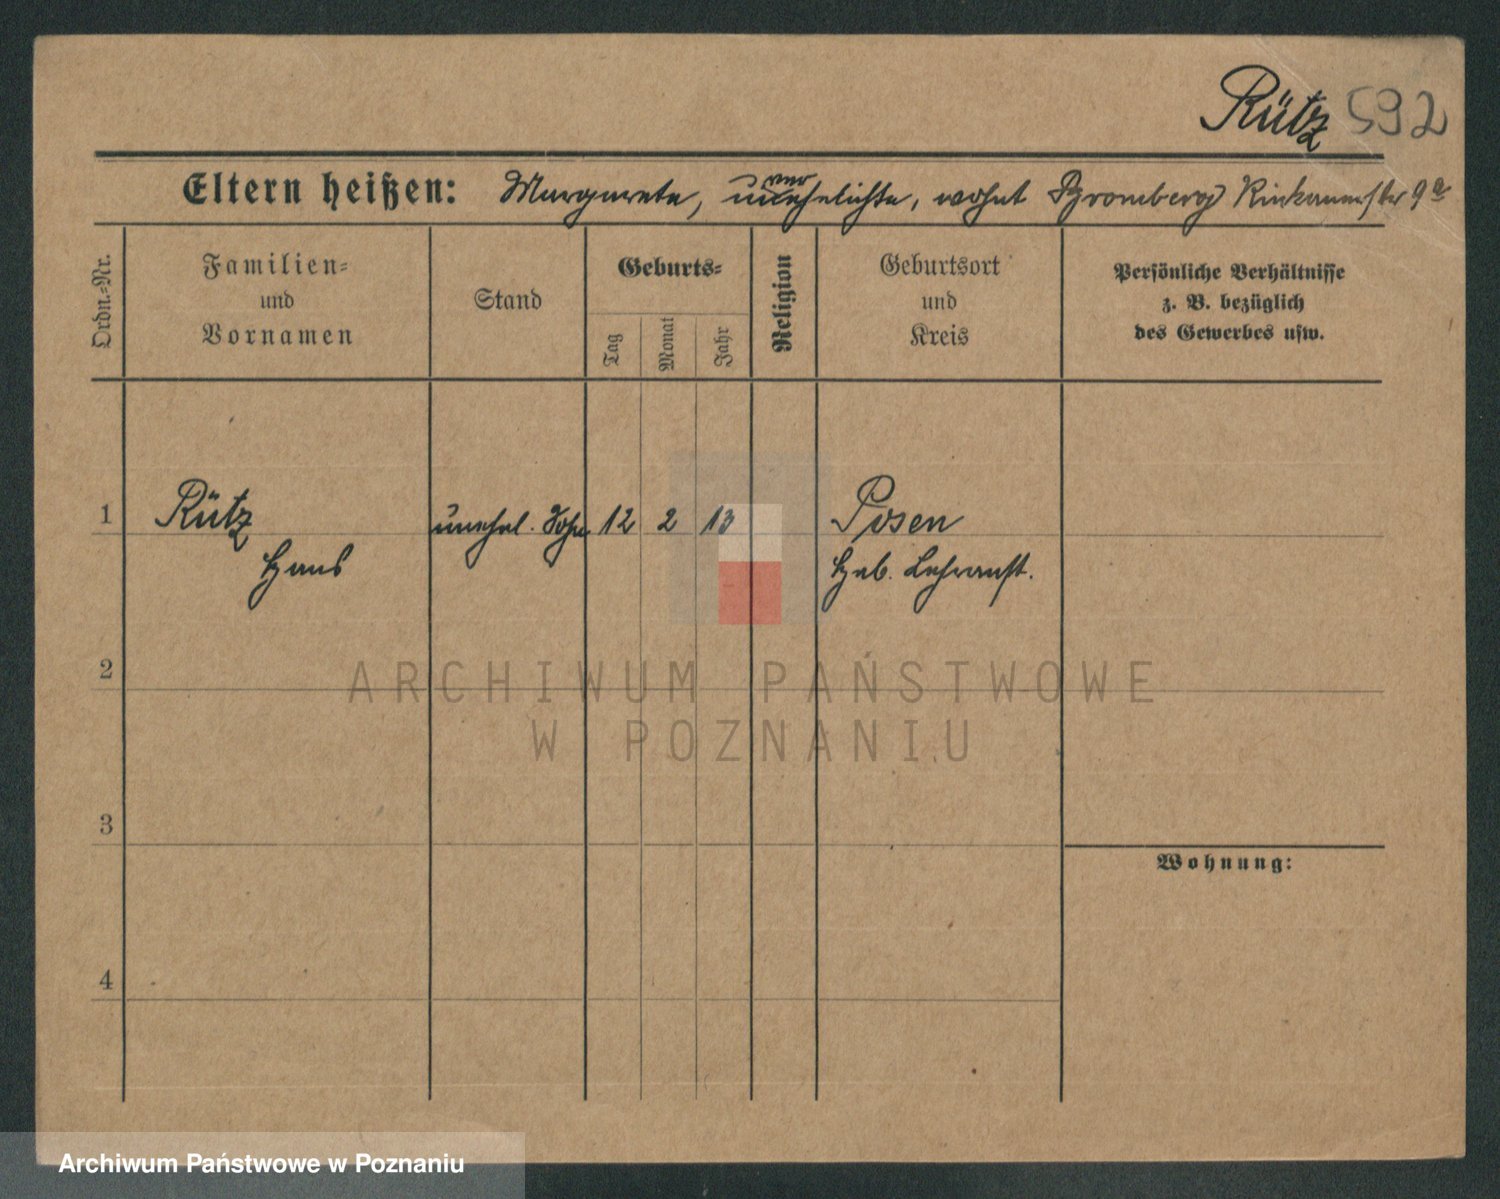 Rütz 592
Eltern heißen: Margarete, unverehelichte, wohnt Bromberg Rinkauerstr 9a
Ordn.-Nr.
Familien-
und
Vornamen
Stand
Geburts-
Tag
Monat
Jahr
Religion
Geburtsort
und
Kreis
Persönliche Verhältnisse
z. B. bezüglich
des Gewerbes usw.
1 Rütz unehel. Sohn 12 2 13 Posen
Hans Heb. Lehranst.
2
ARCHIWUM PAŃSTWOWE
W POZNANIU
3
Wohnung:
4
Archiwum Państwowe w Poznaniu